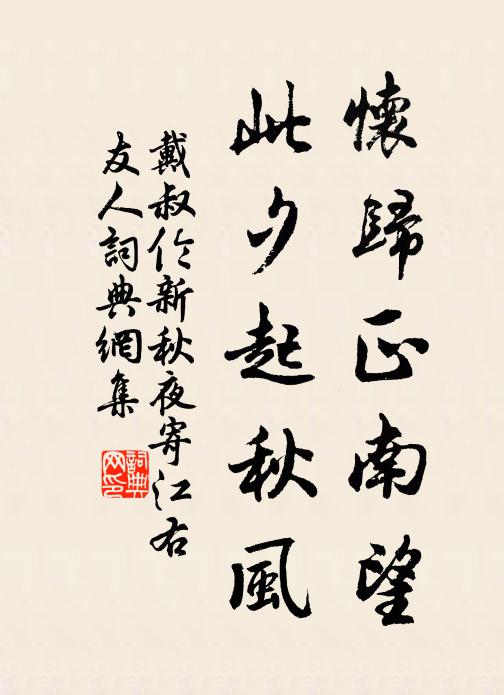 懷歸正南望
此夕起秋風
戴叔伦新秋夜寄江右
友人詞典網集
詞典
网印